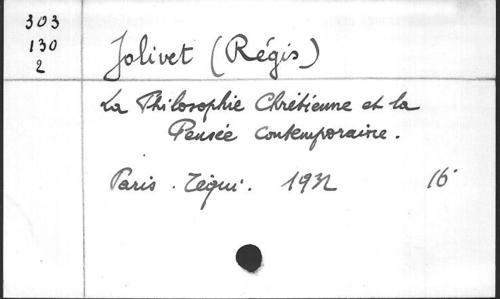 303
130
2
Jolivet (Régis)
La Philosophie Chrétienne et la
Pensée Contemporaine.
Paris. Téqui. 1932 16°